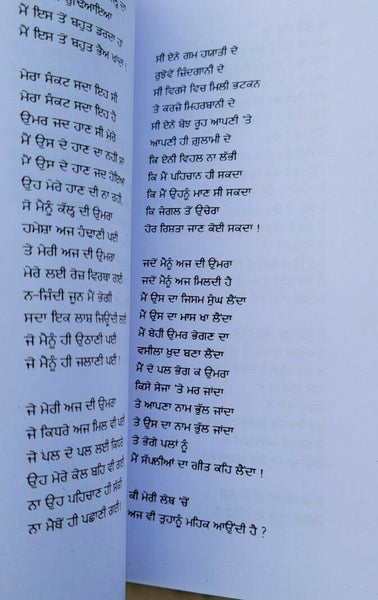 ਮੈਂ ਇਸ ਤੋਂ ਬਹੁਤ ਡਰਦਾ ਹਾਂ
ਮੈਂ ਇਸ ਤੋਂ ਬਹੁਤ ਭੈਅ ਖਾਂਦਾਂ !
ਮੇਰਾ ਸੰਕਟ ਸਦਾ ਇਹ ਸੀ
ਮੇਰਾ ਸੰਕਟ ਸਦਾ ਇਹ ਹੈ
ਉਮਰ ਜਦ ਹਾਣ ਸੀ ਮੇਰੇ
ਮੈਂ ਉਸ ਦੇ ਹਾਣ ਦਾ ਨਹੀਂ ਸਾਂ
ਮੈਂ ਉਸ ਦੇ ਹਾਣ ਜਦ ਹੋਇਆ
ਉਹ ਮੇਰੇ ਹਾਣ ਦੀ ਨਾ ਰਹੀ
ਸੋ ਮੈਨੂੰ ਕੱਲ੍ਹ ਦੀ ਉਮਰਾ
ਹਮੇਸ਼ਾ ਅਜ ਹੰਢਾਣੀ ਪਈ
ਤੇ ਮੇਰੀ ਅਜ ਦੀ ਉਮਰਾ
ਮੇਰੇ ਲਈ ਰੋਜ਼ ਵਿਰਥਾ ਗਈ
ਨ-ਜਿੰਦੀ ਜੂਨ ਮੈਂ ਭੋਗੀ
ਸਦਾ ਇਕ ਲਾਸ਼ ਜਿਉਂਦੀ ਰਹੀ
ਜੋ ਮੈਨੂੰ ਹੀ ਉਠਾਣੀ ਪਈ
ਜੋ ਮੈਨੂੰ ਹੀ ਜਲਾਣੀ ਪਈ !
ਜੇ ਮੇਰੀ ਅਜ ਦੀ ਉਮਰਾ
ਜੇ ਕਿਧਰੇ ਅਜ ਮਿਲ ਵੀ ਪਈ
ਜੇ ਪਲ ਦੋ ਪਲ ਲਈ ਕਿਧਰੇ
ਉਹ ਮੇਰੇ ਕੋਲ ਬਹਿ ਵੀ ਗਈ
ਨਾ ਉਹ ਪਹਿਚਾਣ ਹੀ ਸੱਕੀ
ਨਾ ਮੈਥੋਂ ਹੀ ਪਛਾਣੀ ਗਈ !
ਸੀ ਏਨੇ ਗਮ ਹਯਾਤੀ ਦੇ
ਰੁਝੇਵੇਂ ਜ਼ਿੰਦਗਾਨੀ ਦੇ
ਸੀ ਵਿਰਸੇ ਵਿਚ ਮਿਲੀ ਭਟਕਨ
ਤੇ ਕਰਜ਼ੇ ਮਿਹਰਬਾਨੀ ਦੇ
ਸੀ ਏਨੇ ਬੋਝ ਰੂਹ ਆਪਣੀ 'ਤੇ
ਆਪਣੀ ਹੀ ਗ਼ੁਲਾਮੀ ਦੇ
ਕਿ ਏਨੀ ਵਿਹਲ ਨਾ ਲੱਭੀ
ਕਿ ਮੈਂ ਪਹਿਚਾਨ ਹੀ ਸਕਦਾ
ਕਿ ਮੈਂ ਉਹਨੂੰ ਮਾਣ ਸੀ ਸਕਦਾ
ਕਿ ਜੰਗਲ ਤੋਂ ਉਚੇਰਾ
ਹੋਰ ਰਿਸ਼ਤਾ ਜਾਣ ਕੋਈ ਸਕਦਾ !
ਜਦੋਂ ਮੈਨੂੰ ਅਜ ਦੀ ਉਮਰਾ
ਜਦੋਂ ਮੈਨੂੰ ਅਜ ਮਿਲਦੀ ਹੈ
ਮੈਂ ਉਸ ਦਾ ਜਿਸਮ ਸੁੰਘ ਲੈਂਦਾ
ਮੈਂ ਉਸ ਦਾ ਮਾਸ ਖਾ ਲੈਂਦਾ
ਮੈਂ ਬੇਹੀ ਉਮਰ ਭੋਗਣ ਦਾ
ਵਸੀਲਾ ਖ਼ੁਦ ਬਣਾ ਲੈਂਦਾ
ਮੈਂ ਦੋ ਪਲ ਭੋਗ ਕ ਉਮਰਾ
ਕਿਸੇ ਸੇਜਾ 'ਤੇ ਮਰ ਜਾਂਦਾ
ਤੇ ਆਪਣਾ ਨਾਮ ਭੁੱਲ ਜਾਂਦਾ
ਤੇ ਉਸ ਦਾ ਨਾਮ ਭੁੱਲ ਜਾਂਦਾ
ਤੇ ਭੋਗੇ ਪਲਾਂ ਨੂੰ
ਮੈਂ ਸੱਪਣੀਆਂ ਦਾ ਗੀਤ ਕਹਿ ਲੈਂਦਾ !
ਕੀ ਮੇਰੀ ਲੋਥ 'ਚੋਂ
ਅਜ ਵੀ ਤੁਹਾਨੂੰ ਮਹਿਕ ਆਉਂਦੀ ਹੈ ?